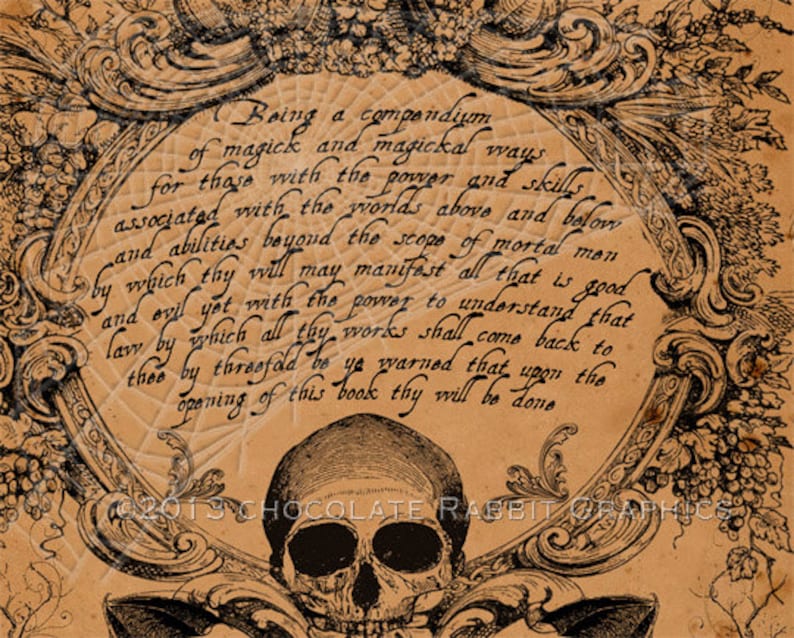 Being a compendium
of magick and magickal ways
for those with the power and skills
associated with the worlds above and below
and abilities beyond the scope of mortal men
by which thy will may manifest all that is good
and evil yet with the power to understand that
law by which all thy works shall come back to
thee by threefold be ye warned that upon the
opening of this book thy will be done
©2013 Chocolate Rabbit Graphics